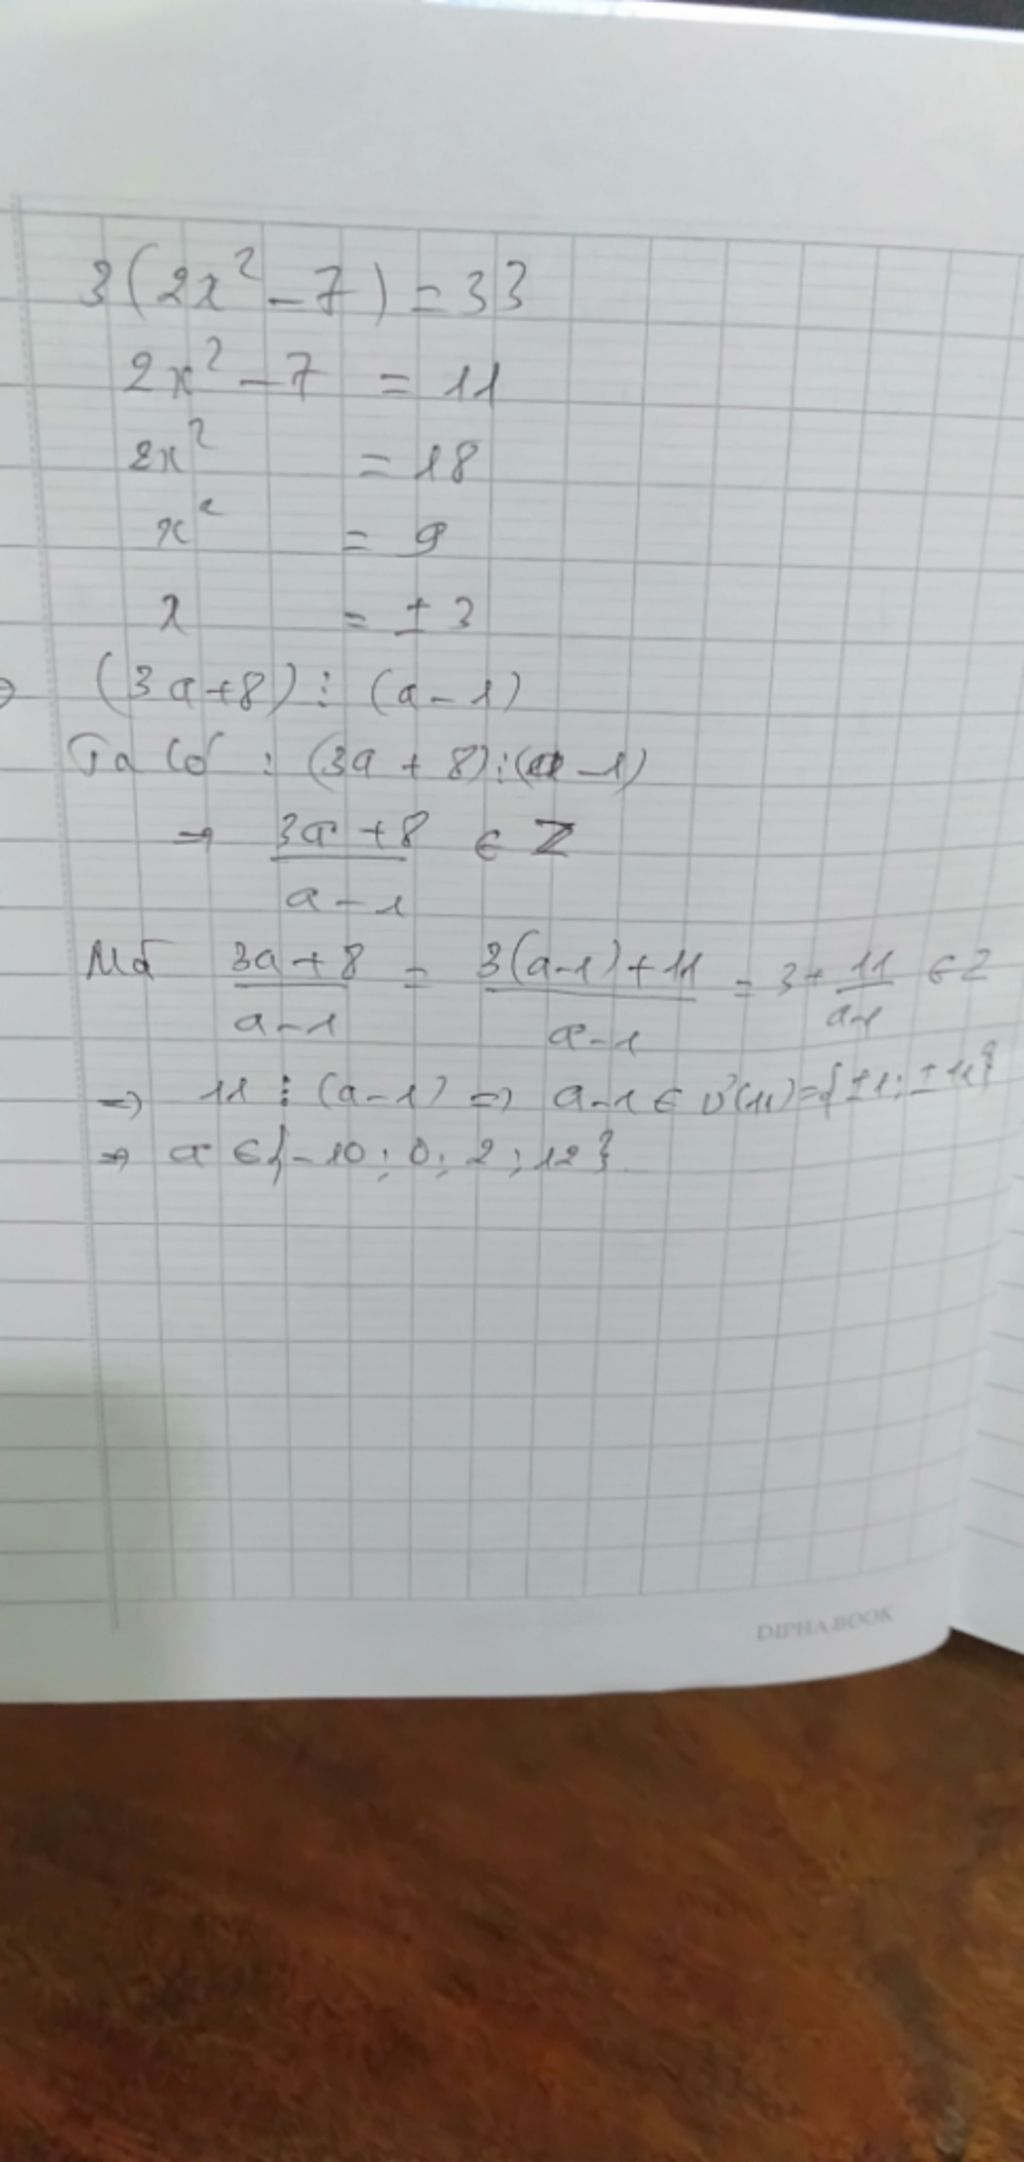 3(2x² - 7) = 33
2x² - 7 = 11
2x² = 18
x² = 9
x = ± 3
(3a+8) ⋮ (a-1)
Ta có : (3a + 8) ⋮ (a -1)
⇒ \frac{3a+8}{a-1} ∈ Z
Mà \frac{3a+8}{a-1} = \frac{3(a-1)+11}{a-1} = 3+ \frac{11}{a-1} ∈ Z
⇒ 11 ⋮ (a-1) ⇒ a-1 ∈ Ư(11)={±1; ±11}
⇒ a ∈{-10; 0; 2; 12}
DIPHA BOOK